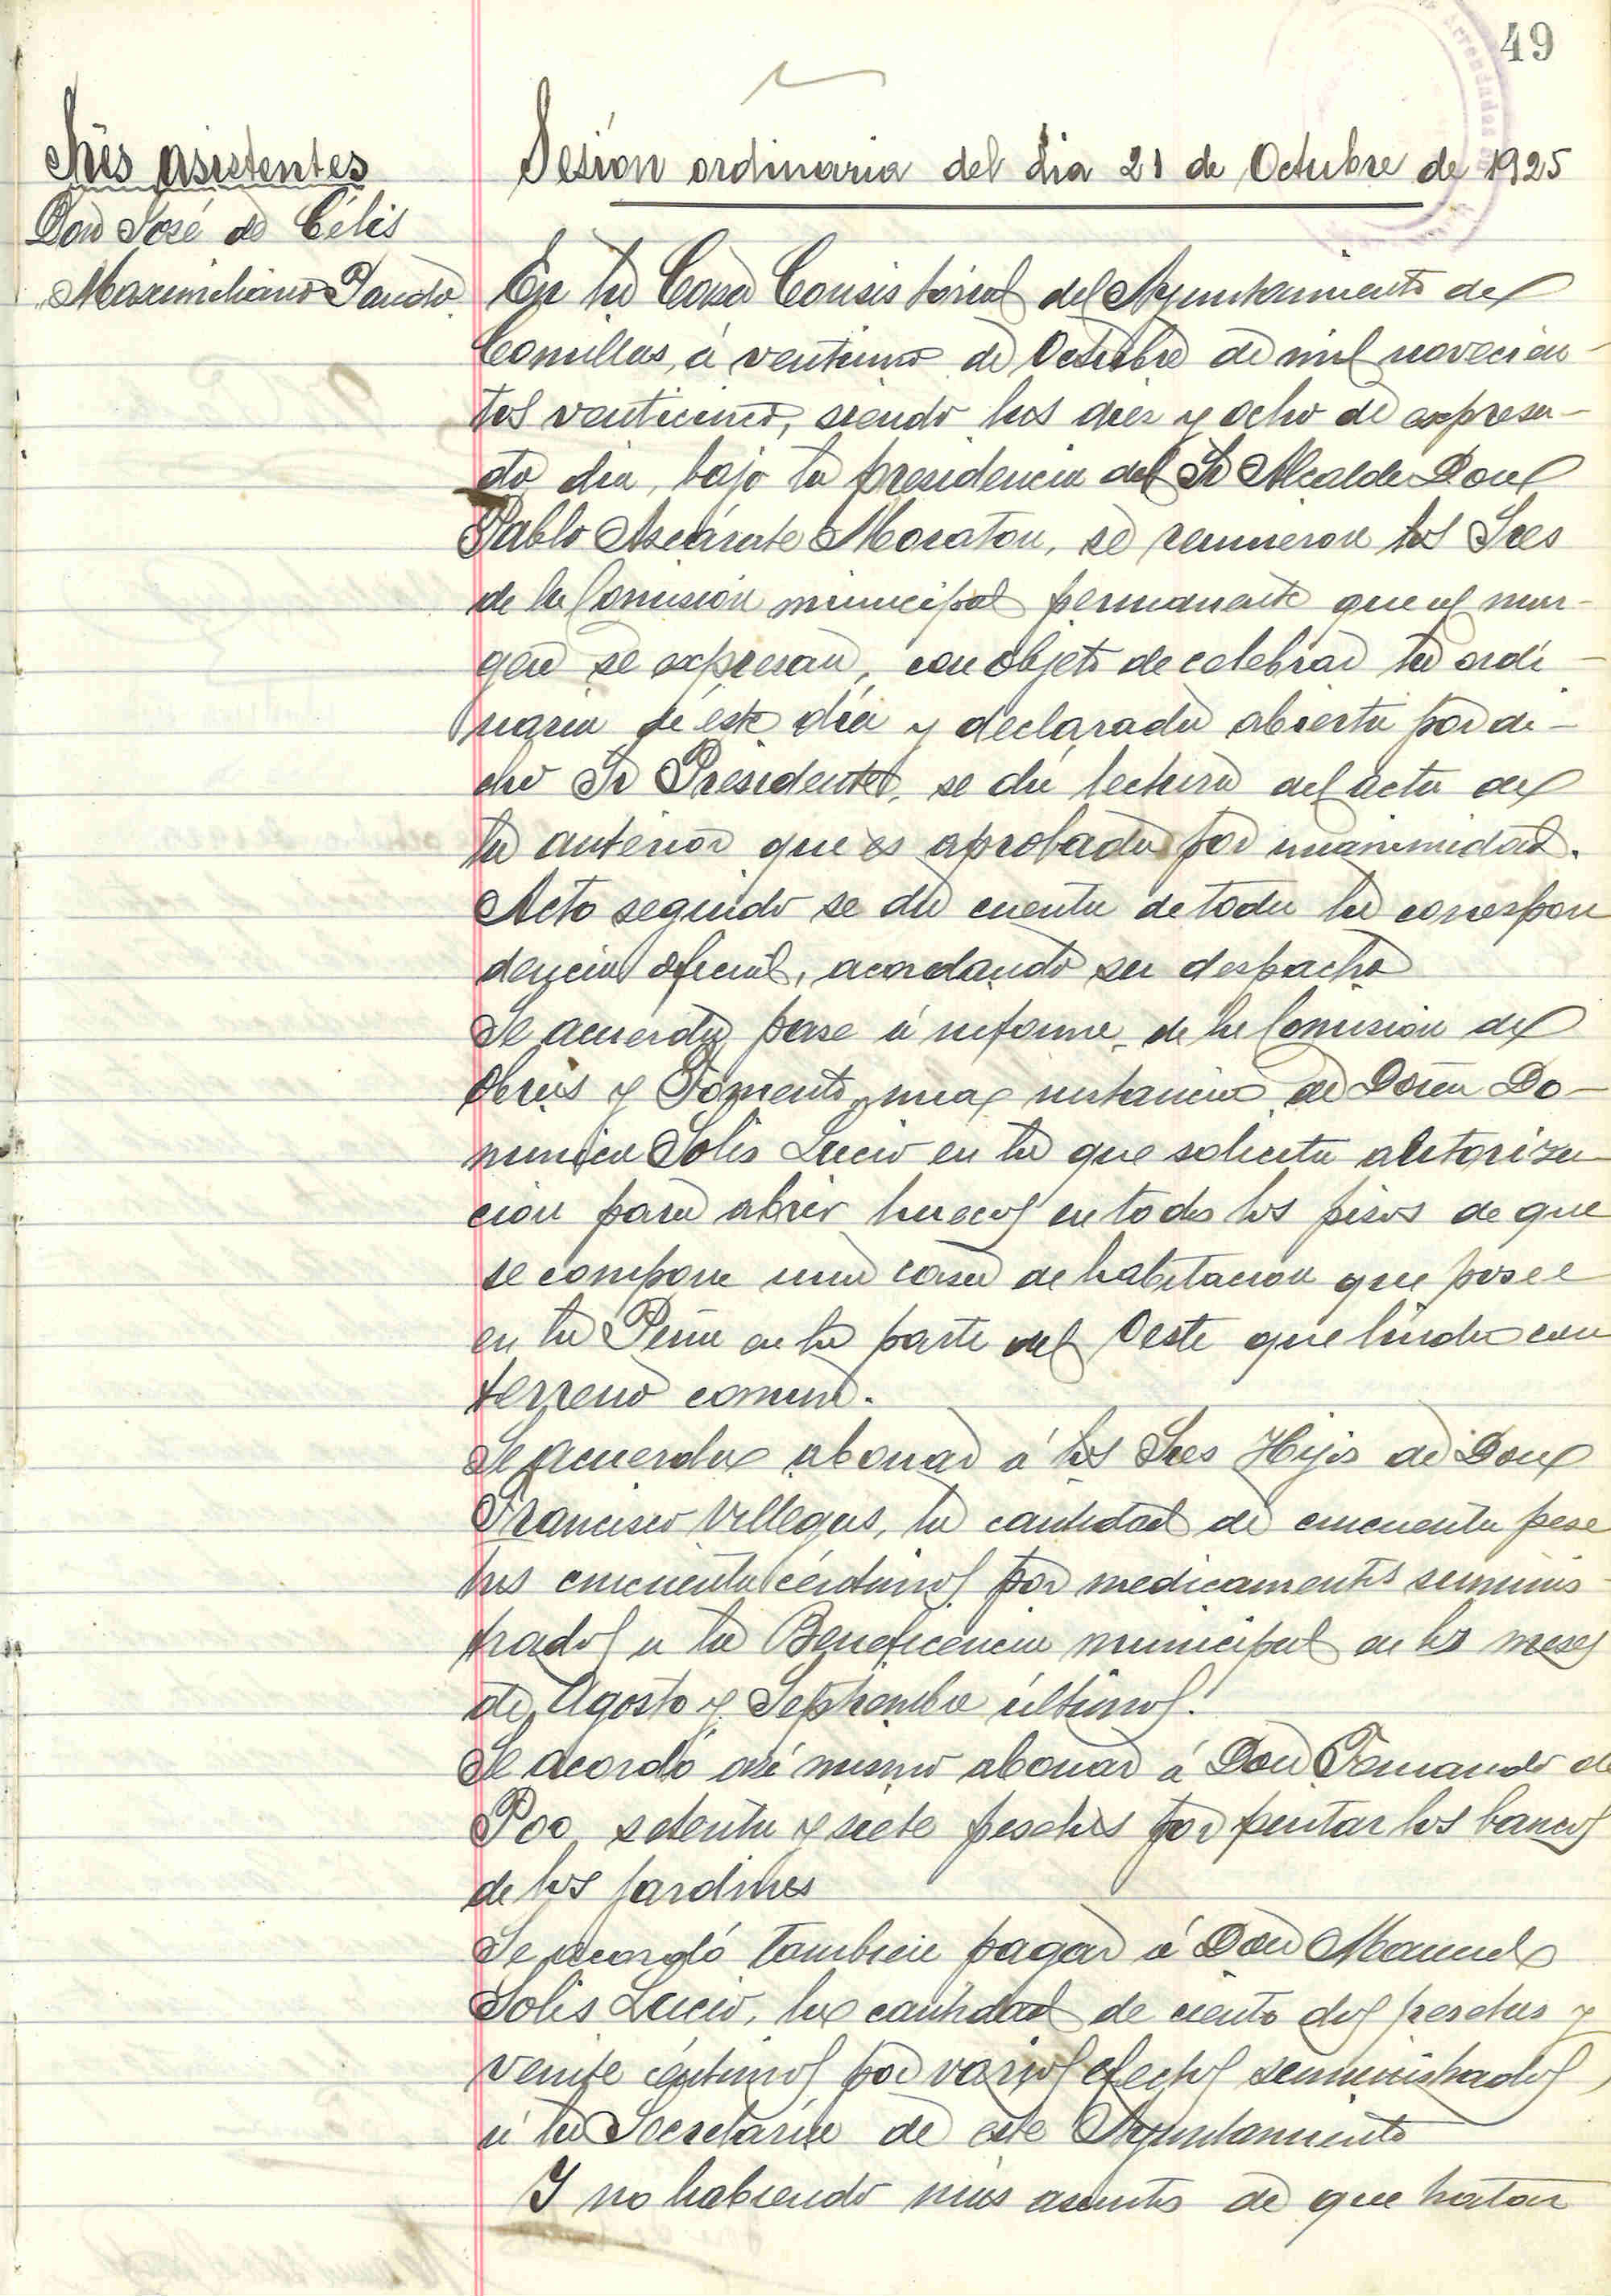 49
Sres asistentes
Don José de Célis
" Maximiliano Pando
Sesión ordinaria del dia 21 de Octubre de 1925
En la Casa Consistorial del Ayuntamiento de
Comillas, á ventiuno de Octubre de mil novecien-
tos venticinco, siendo las diez y ocho de expresa-
do dia, bajo la presidencia del Sr Alcalde Don
Pablo Azcárate Moratón, se reunieron los Sres
de la Comisión municipal permanente que al mar-
gen se expresan, con objeto de celebrar la ordi-
naria de éste día y declarada abierta por di-
cho Sr Presidente, se dá lectura del acta de
la anterior que es aprobada por unanimidad.
Acto seguido se dá cuenta de toda la correspon
dencia oficial, acordando su despacho
Se acuerda pase á informe de la Comisión de
Obras y Fomento, una instancia de Doña Do-
minica Solis Lucio en la que solicita autoriza-
ción para abrir huecos en todos los pisos de que
se compone una casa de habitacion que posee
en la Peña en la parte del Oeste que linda con
terreno comun.
Se acuerda abonar á los Sres Hijos de Don
Francisco Villegas, la cantidad de cincuenta pese
tas cincuenta céntimos por medicamentos suminis-
trados a la Beneficencia municipal en los meses
de Agosto y Septiembre últimos.
Se acordó así mismo abonar á Don Fernando de
Poo setenta y siete pesetas por pintar los bancos
de los jardines
Se acordó tambien pagar á Don Manuel
Solis Lucio, la cantidad de ciento dos pesetas y
veinte céntimos por varios efectos suministrados
á la Secretaría de este Ayuntamiento
Y no habiendo más asuntos de que tratar